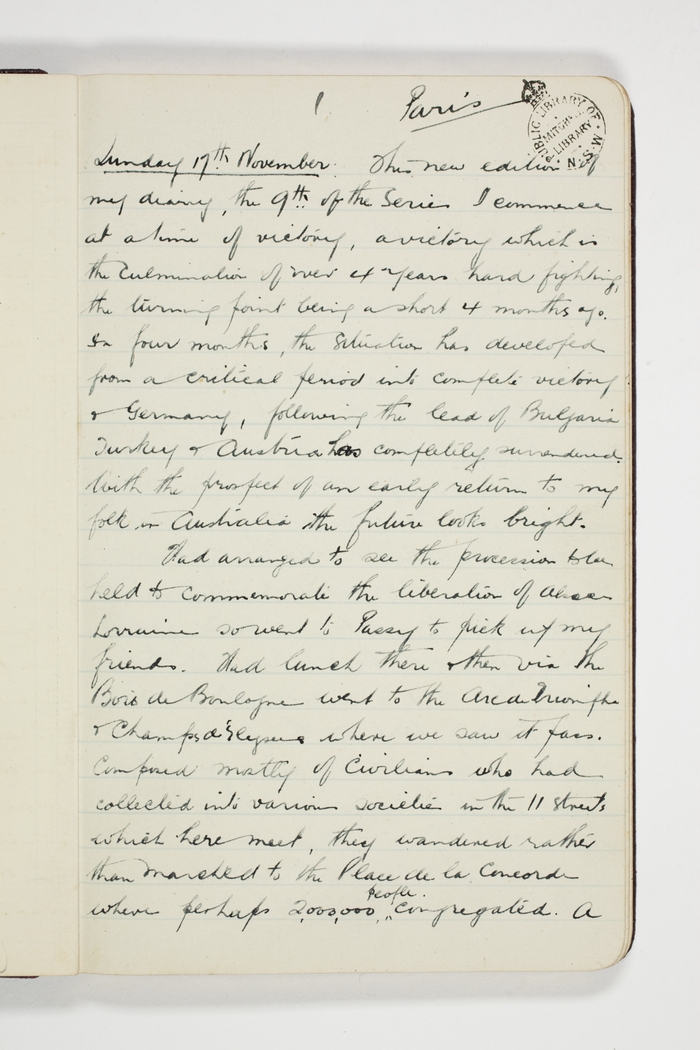 1
Paris
PUBLIC LIBRARY OF N.S.
MITCHELL LIBRARY
Sunday 17th November. This new edition of
my diary, the 9th of the Series I commence
at a time of victory, a victory which is
the culmination of over 4 years hard fighting,
the turning point being a short 4 months ago.
In four months, the situation has developed
from a critical period into complete victory
& Germany, following the lead of Bulgaria
Turkey & Austria has completely surrendered.
With the prospect of an early return to my
folk in Australia the future looks bright.
Had arranged to see the procession to be
held to commemorate the liberation of Alsace
Lorraine so went to Passy to pick up my
friends. Had lunch there & then via the
Bois de Boulogne went to the Arc de Triomphe
& Champs d'Elysees where we saw it pass.
Composed mostly of Civilians who had
collected into various societies in the 11 streets
which here meet, they wandered rather
than marched to the Place de la Concorde
where perhaps 2,000,000 people congregated. A